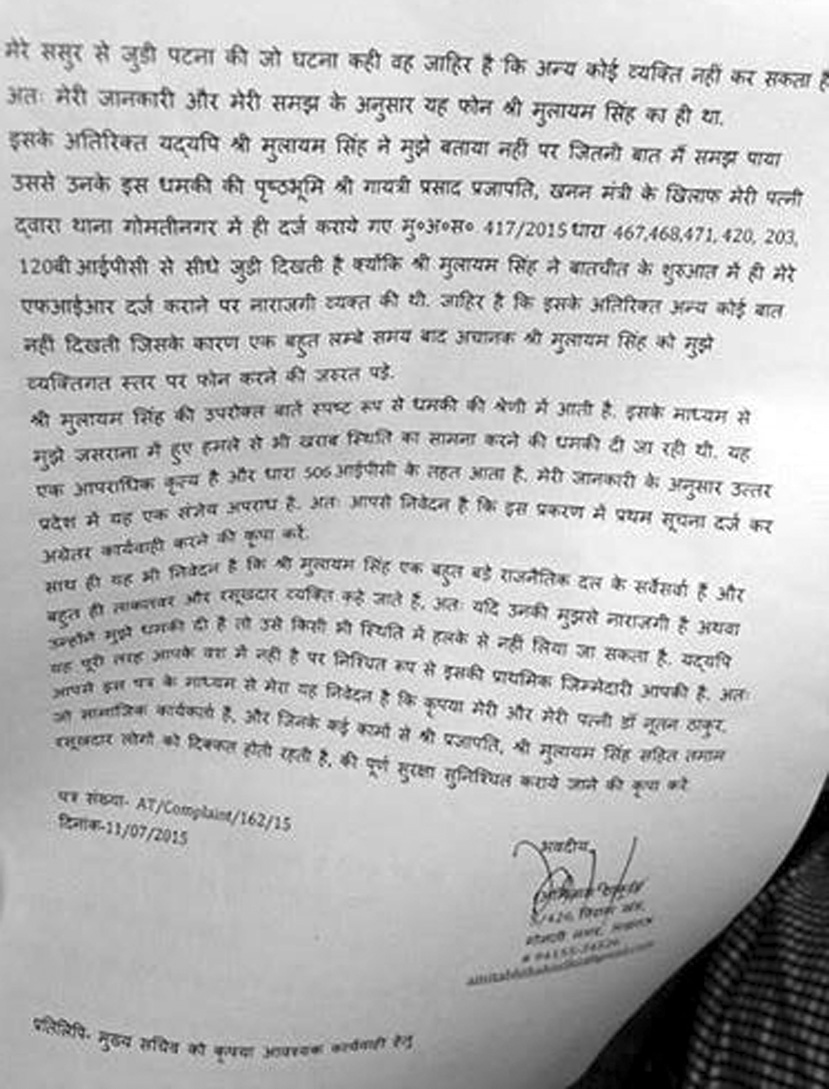 मेरे ससुर से जुडी पटना की जो घटना कही वह जाहिर है कि अन्य कोई व्यक्ति नहीं कर सकता है
अतः मेरी जानकारी और मेरी समझ के अनुसार यह फोन श्री मुलायम सिंह का ही था.
इसके अतिरिक्त यद्यपि श्री मुलायम सिंह ने मुझे बताया नहीं पर जितनी बात मैं समझ पाया
उससे उनके इस धमकी की पृष्ठभूमि श्री गायत्री प्रसाद प्रजापति, खनन मंत्री के खिलाफ मेरी पत्नी
द्वारा थाना गोमतीनगर में ही दर्ज कराये गए मु०अ०स० 417/2015 धारा 467,468,471, 420, 203,
120बी आईपीसी से सीधे जुडी दिखती है क्योंकि श्री मुलायम सिंह ने बातचीत के शुरुआत में ही मेरे
एफआईआर दर्ज कराने पर नाराजगी व्यक्त की थी. जाहिर है कि इसके अतिरिक्त अन्य कोई बात
नहीं दिखती जिसके कारण एक बहुत लम्बे समय बाद अचानक श्री मुलायम सिंह को मुझे
व्यक्तिगत स्तर पर फोन करने की जरुरत पड़े.
श्री मुलायम सिंह की उपरोक्त बातें स्पष्ट रूप से धमकी की श्रेणी में आती है. इसके माध्यम से
मुझे जसराना में हुए हमले से भी खराब स्थिति का सामना करने की धमकी दी जा रही थी. यह
एक आपराधिक कृत्य है और धारा 506 आईपीसी के तहत आता है. मेरी जानकारी के अनुसार उत्तर
प्रदेश में यह एक संज्ञेय अपराध है. अतः आपसे निवेदन है कि इस प्रकरण में प्रथम सूचना दर्ज कर
अग्रेतर कार्यवाही करने की कृपा करें.
साथ ही यह भी निवेदन है कि श्री मुलायम सिंह एक बहुत बड़े राजनैतिक दल के सर्वेसर्वा हैं और
बहुत ही ताकतवर और रसूखदार व्यक्ति कहे जाते हैं, अतः यदि उनकी मुझसे नाराजगी है अथवा
उन्होंने मुझे धमकी दी है तो उसे किसी भी स्थिति में हलके से नहीं लिया जा सकता है. यद्यपि
यह पूरी तरह आपके वश में नहीं है पर निश्चित रूप से इसकी प्राथमिक जिम्मेदारी आपकी है. अतः
आपसे इस पत्र के माध्यम से मेरा यह निवेदन है कि कृपया मेरी और मेरी पत्नी डॉ नूतन ठाकुर,
जो सामाजिक कार्यकर्ता हैं, और जिनके कई कामों से श्री प्रजापति, श्री मुलायम सिंह सहित तमाम
रसूखदार लोगों को दिक्कत होती रहती है, की पूर्ण सुरक्षा सुनिश्चित कराये जाने की कृपा करें
पत्र संख्या- AT/Complaint/162/15
दिनांक-11/07/2015
भवदीय,
गोमती नगर, लखनऊ
प्रतिलिपि- मुख्य सचिव को कृपया आवश्यक कार्यवाही हेतु